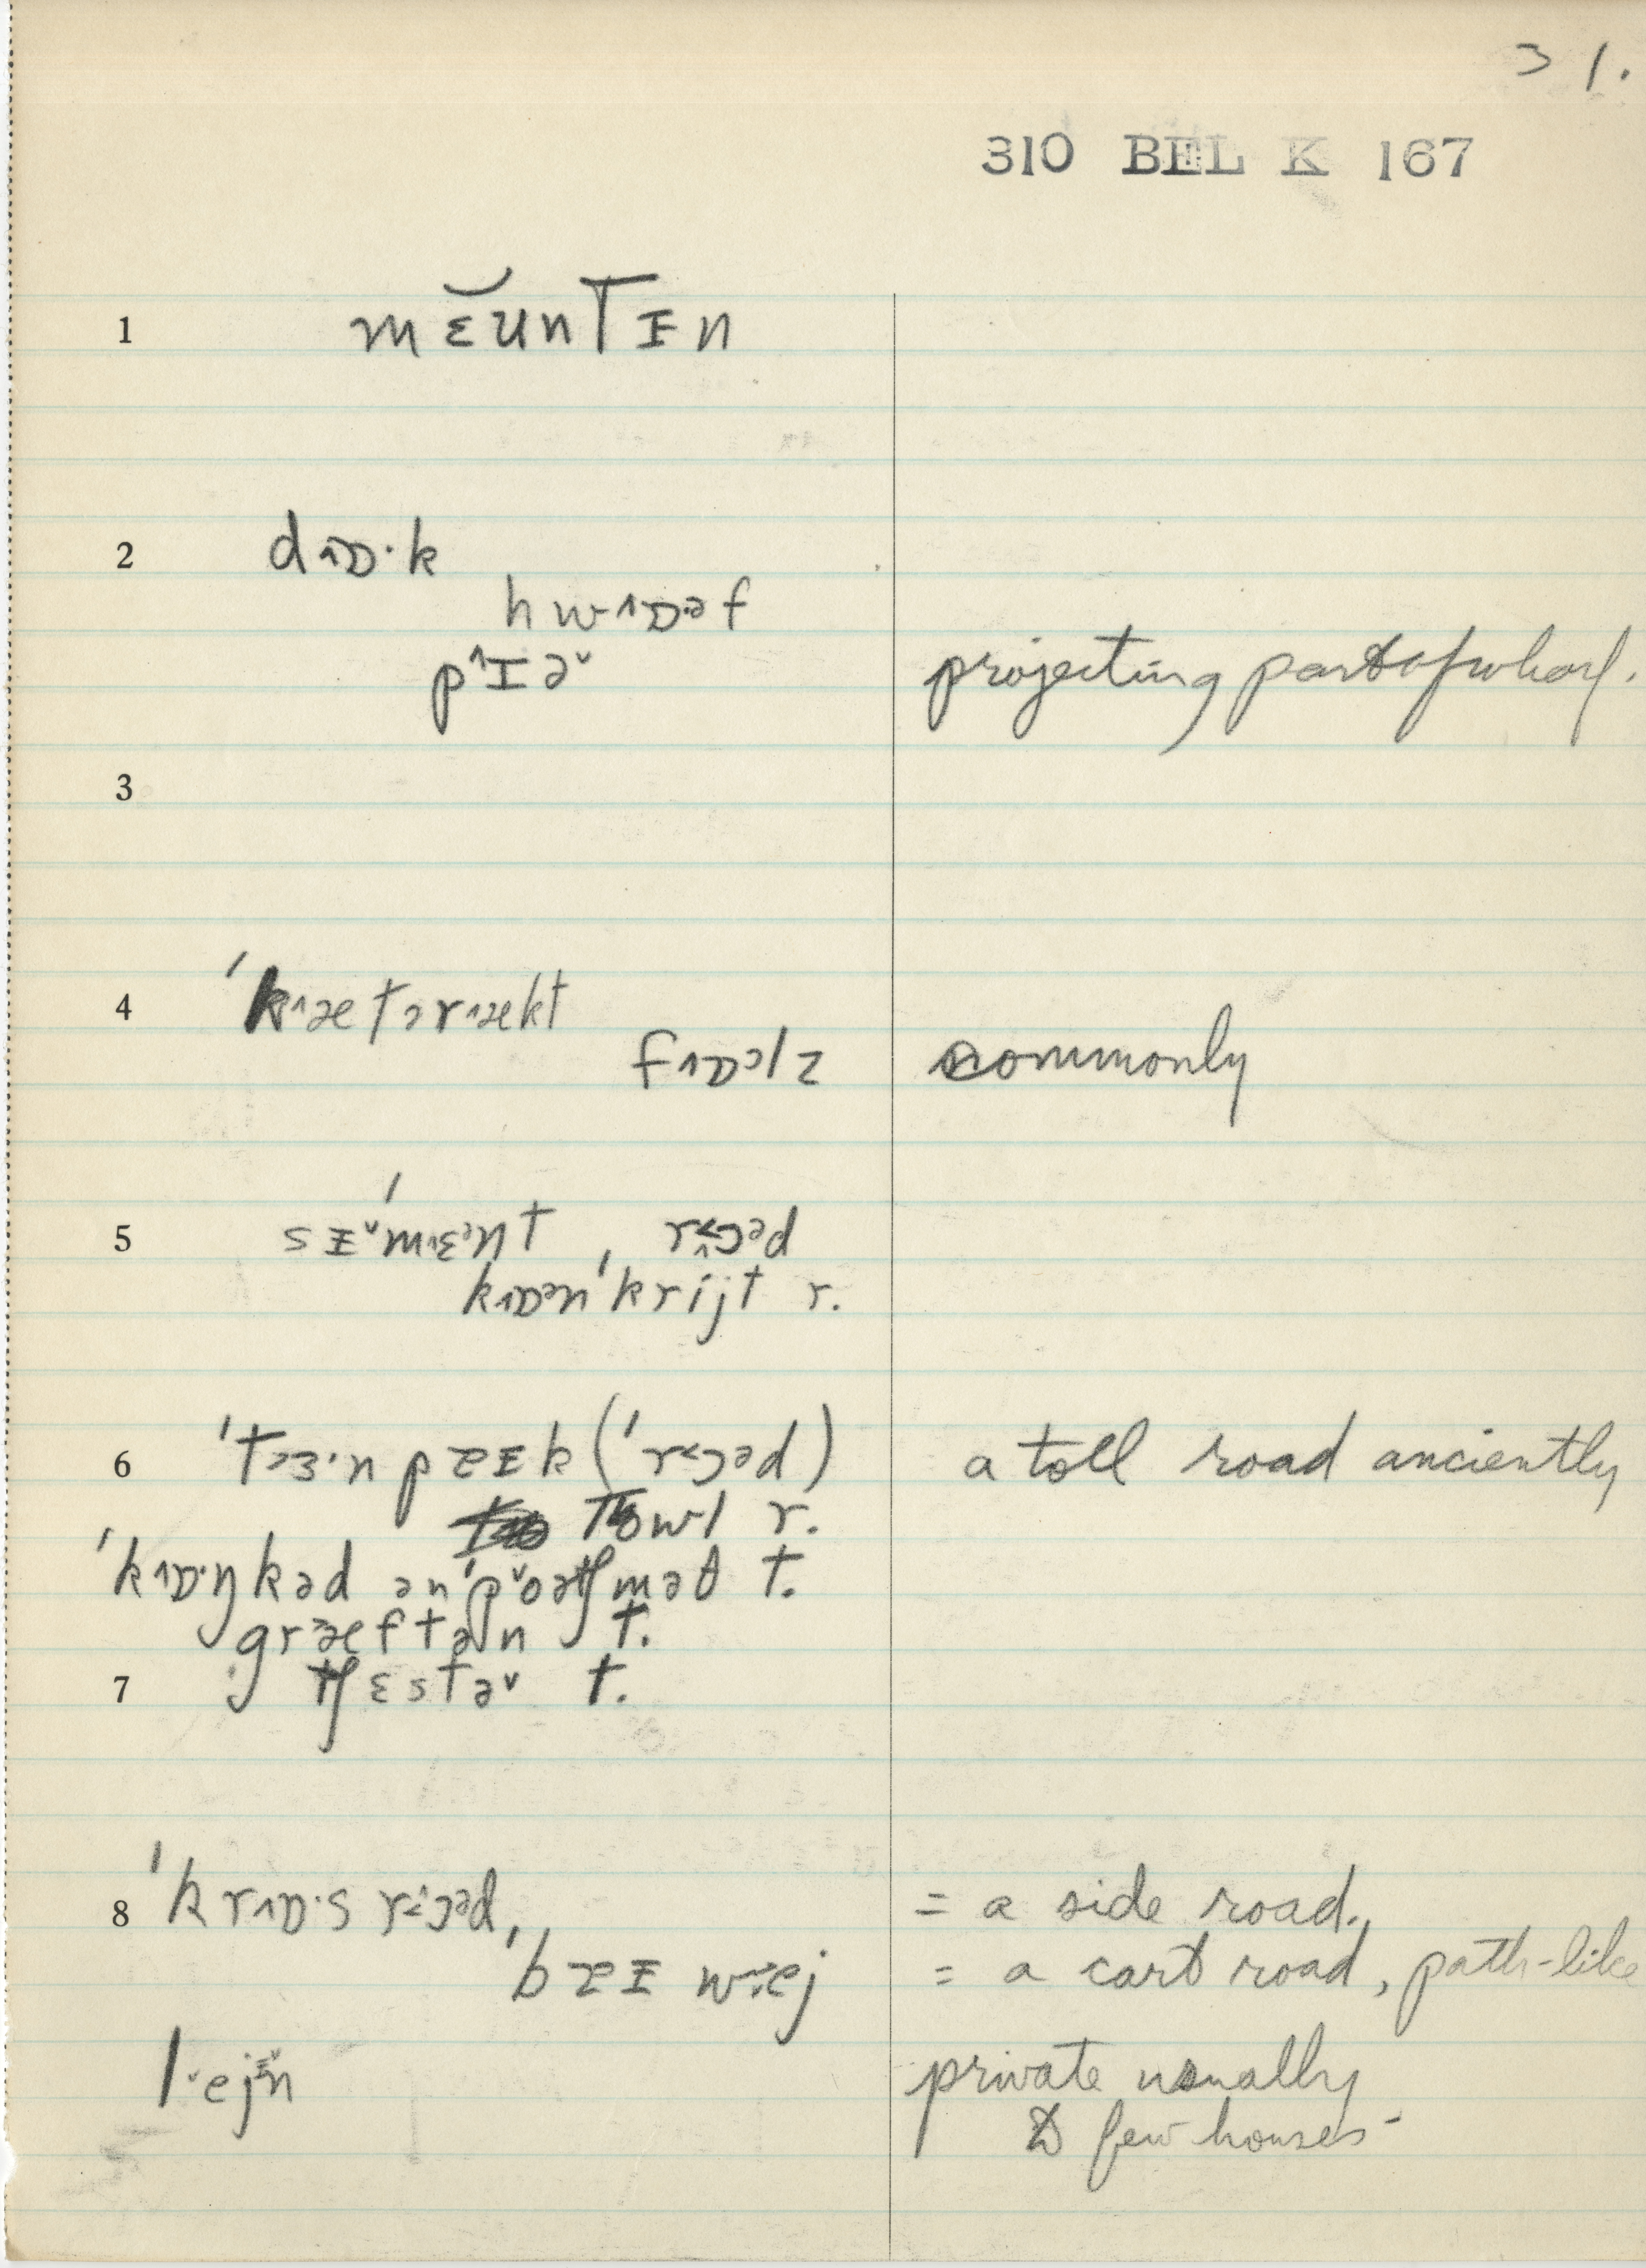 31.
310 BEL K 167
1 mɛ̆ʊnTɪn
2 dɒ·k
hwɒəf
pɪə projecting part of wharf.
3
4 ˈkætərækt
fɒəlz commonly
5 sɪˈmɛənt, rɔəd
kɒənˈkrijt r.
6 ˈtɜ·npɐɪk (ˈrɔəd) a toll road anciently
Towl r.
ˈkɒ·ŋkəd ənˈpoətʃməθ t.
græftən t.
7 tʃɛstə t.
8 ˈkrɒ·s rɔəd, = a side road.,
ˈbɐɪ wej = a cart road, path-like
l·ejɪn private usually
to few houses-